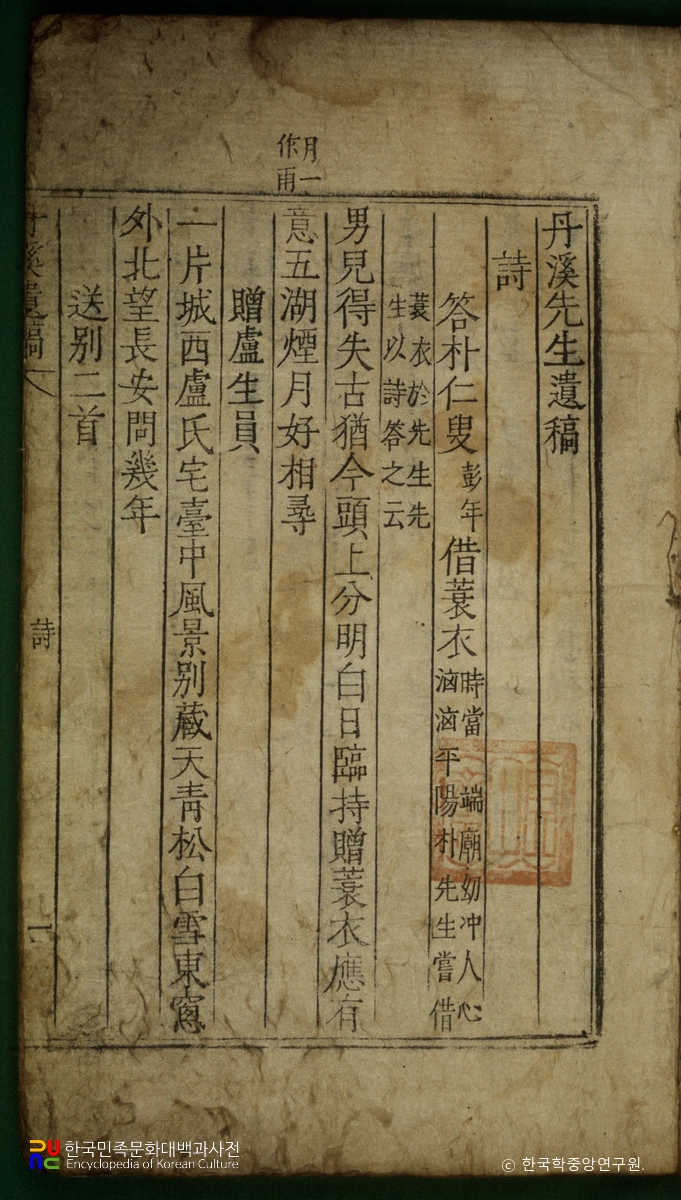 丹溪先生遺稿
詩
答朴仁叟彭年借蓑衣時當 端廟幼冲人心
洶洶平陽朴先生嘗借
蓑衣於先生先
生以詩答之云
男兒得失古猶今頭上分明白日臨持贈蓑衣應有
意五湖煙月好相尋
月一
作雨
贈盧生員
一片城西盧氏宅臺中風景別藏天青松白雪東窓
外北望長安問幾年
送別二首
丹溪遺稿
詩
一
한국민족문화대백과사전
Encyclopedia of Korean Culture
© 한국학중앙연구원.